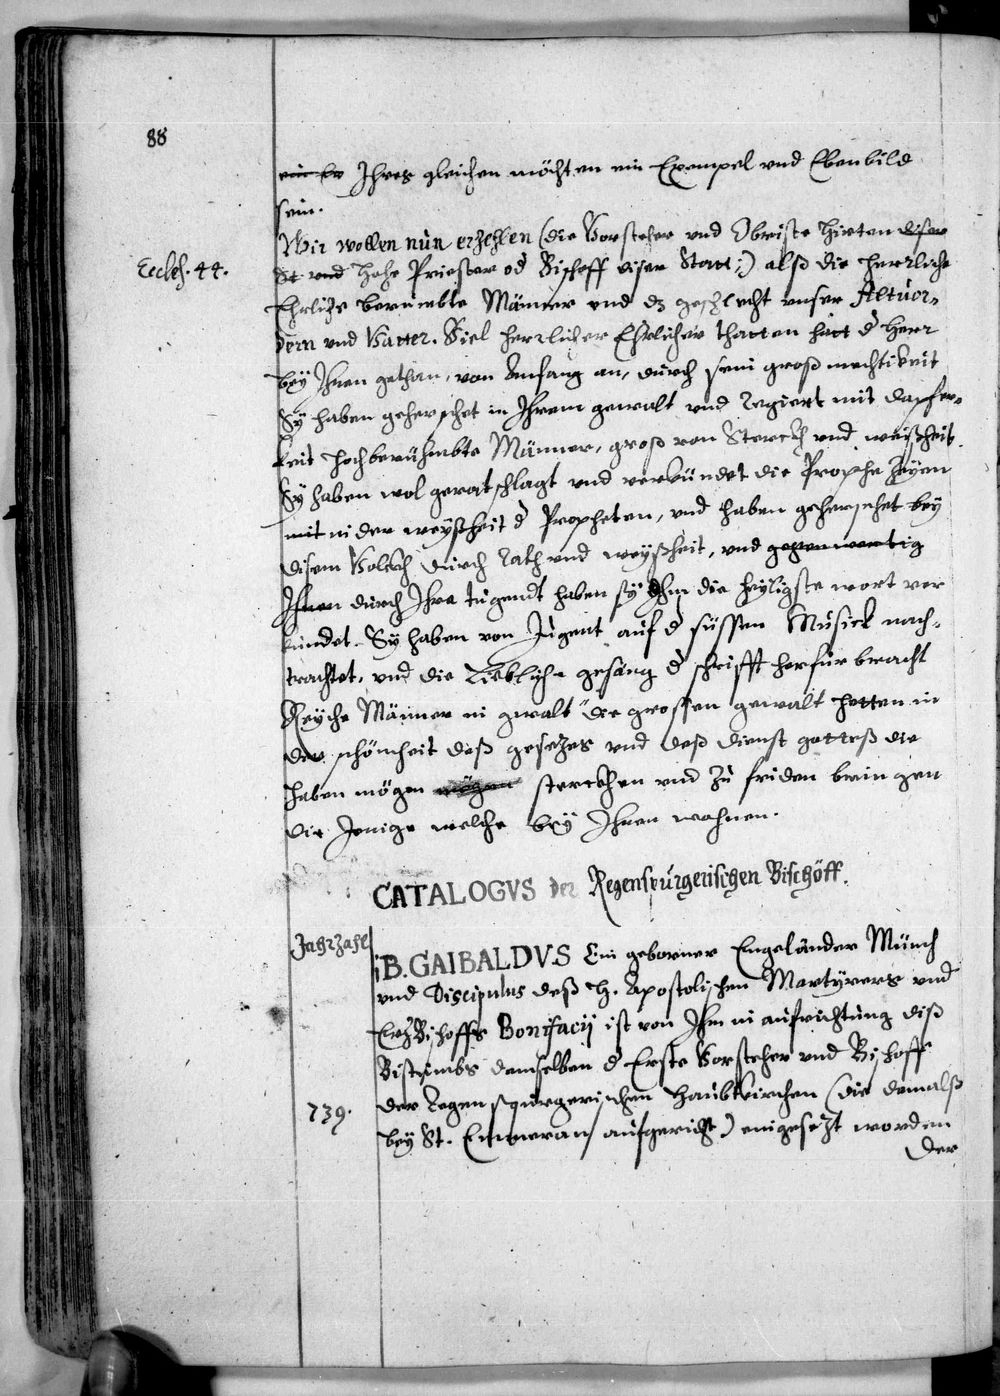 88
Ihres gleichen möchten ein Exempel vnd Ebenbild
sein.
Wir wollen nün erzehlen (die Vorsteher vnd Obriste Hirten diser
Eccles. 44.
St vnd Hohe Priester od Bischoff diser Statt;) alß die herrliche
Ehrliche berümbte Männer vnd dz geschlecht vnser Altvor-
dern vnd Vatter. Viel herrlicher Ehrlicher thatten hatt d Herr
beÿ Ihnen gethan, von Anfang an, durch sein groß mechtikeit
Sÿ haben geherschet in Ihrem gewalt vnd Regiert mit dapfer-
keit hochberühmbte Männer, groß von Sterckh vnd weißheit
Sÿ haben wol geratschlagt vnd verkündet die Prophezeÿen
mit in der weÿßheit d Propheten, vnd haben geherschet beÿ
disem Volckh durch Rath vnd weÿßheit, vnd gegenwertig
Ihnen durch Ihre tugendt haben sÿ die heÿligste wort ver
kündet. Sÿ haben von Jugent auf d süssen Musick nach-
trachtet, vnd die Liebliche gesäng d schrifft herfür bracht
Reÿche Männer in gwalt die grossen gewalt hetten in
der schönheit deß gesezes vnd deß dienst gotteß die
haben mögen mögen sterckhen vnd zu friden bringen
die Jenige welche beÿ Ihnen wohnen.
CATALOGVS der Regenspurgerischen Bischöff.
Jahrzahl
B. GAIBALDVS Ein geborner Engeländer Münch
vnd Discipulus deß H. Apostolischen Martÿrers vnd
ErzBischoffs Bonifacij ist von Ihm in aufrichtung diß
Bistumbs demselben d Erste Vorsteher vnd Bischoff
739.
der Regenspurgerischen Haubtkirchen (die damalß
beÿ St. Emmeran aufgericht) eingesezt worden
Der